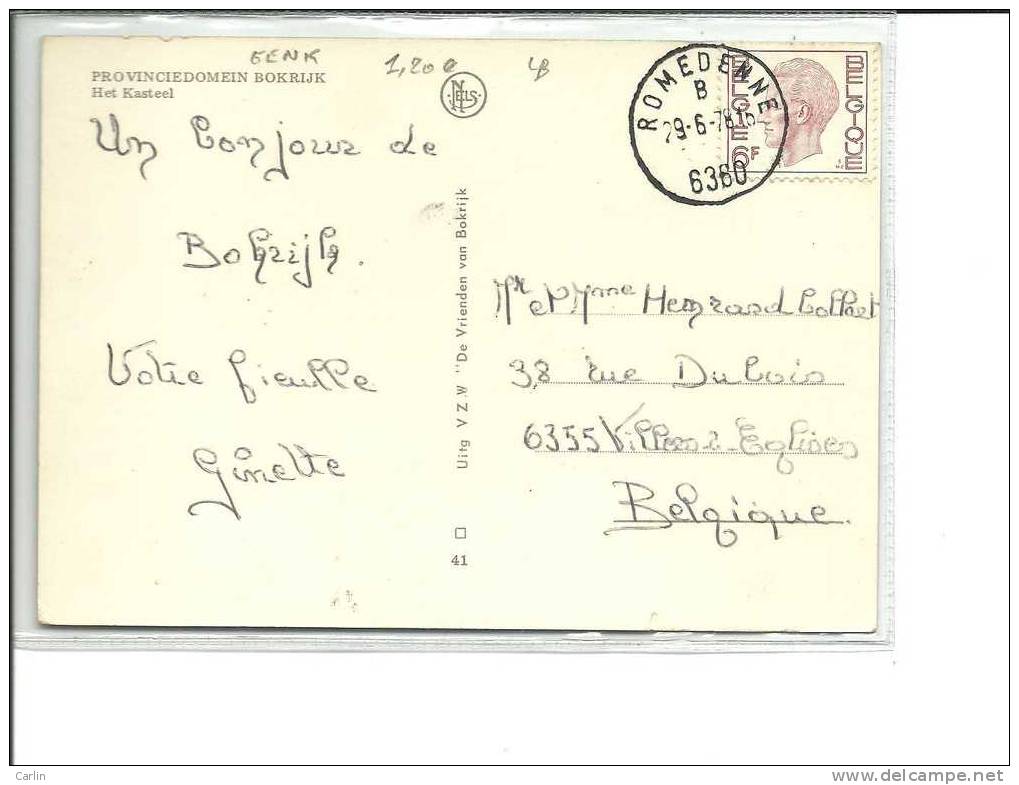 EENK
1,20 e
PROVINCIEDOMEIN BOKRIJK
Het Kasteel
NELS
Un bonjour de
Bokrijk.
Votre fieulle
Ginette
Uitg V Z.W "De Vrienden van Bokrijk
41
ROMEDENNE
B
29-6-78 16
6360
BELGIE 6F
BELGIQUE
Mr et Mme Hemrard Collet
38 rue Dubois
6355 Villers-2-Eglises
Belgique.
Carlin
www.delcampe.net